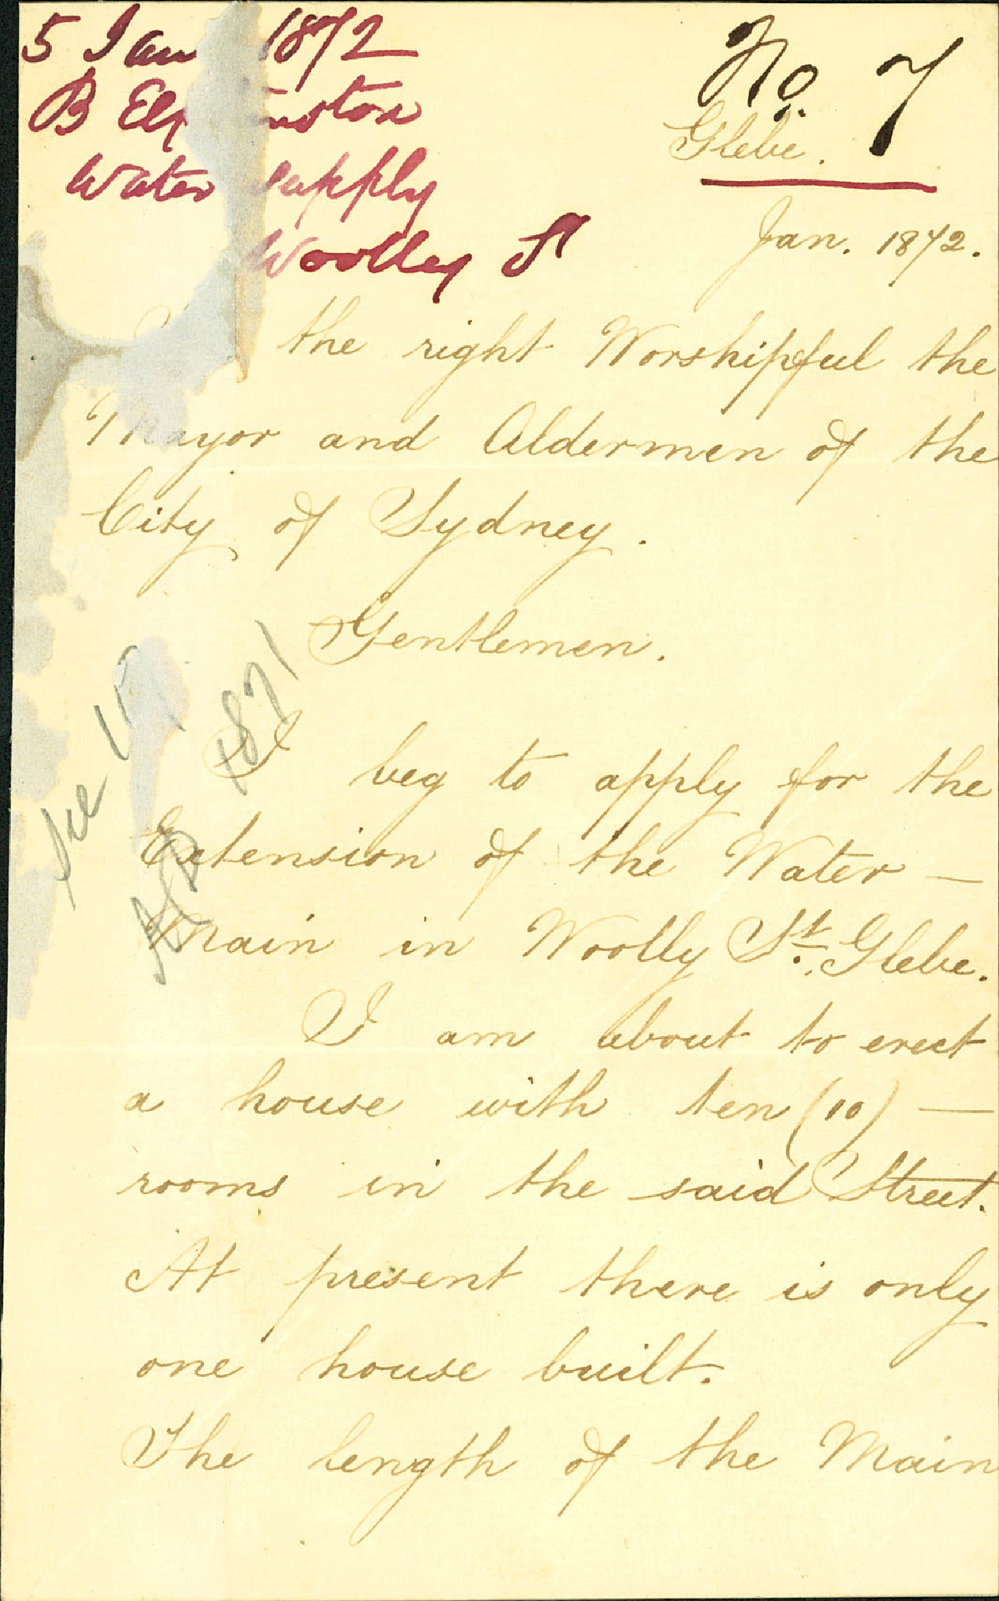 5 Jan 1872
B El nston
Water Supply
Woolley St
No. 7
Glebe.
Jan. 1872.
the right Worshipful the
Mayor and Aldermen of the
City of Sydney.
Gentlemen.
I beg to apply for the
Extension of the Water —
Main in Woolly St. Glebe.
I am about to erect
a house with ten (10) —
rooms in the said Street.
At present there is only
one house built.
The length of the Main
See
1871